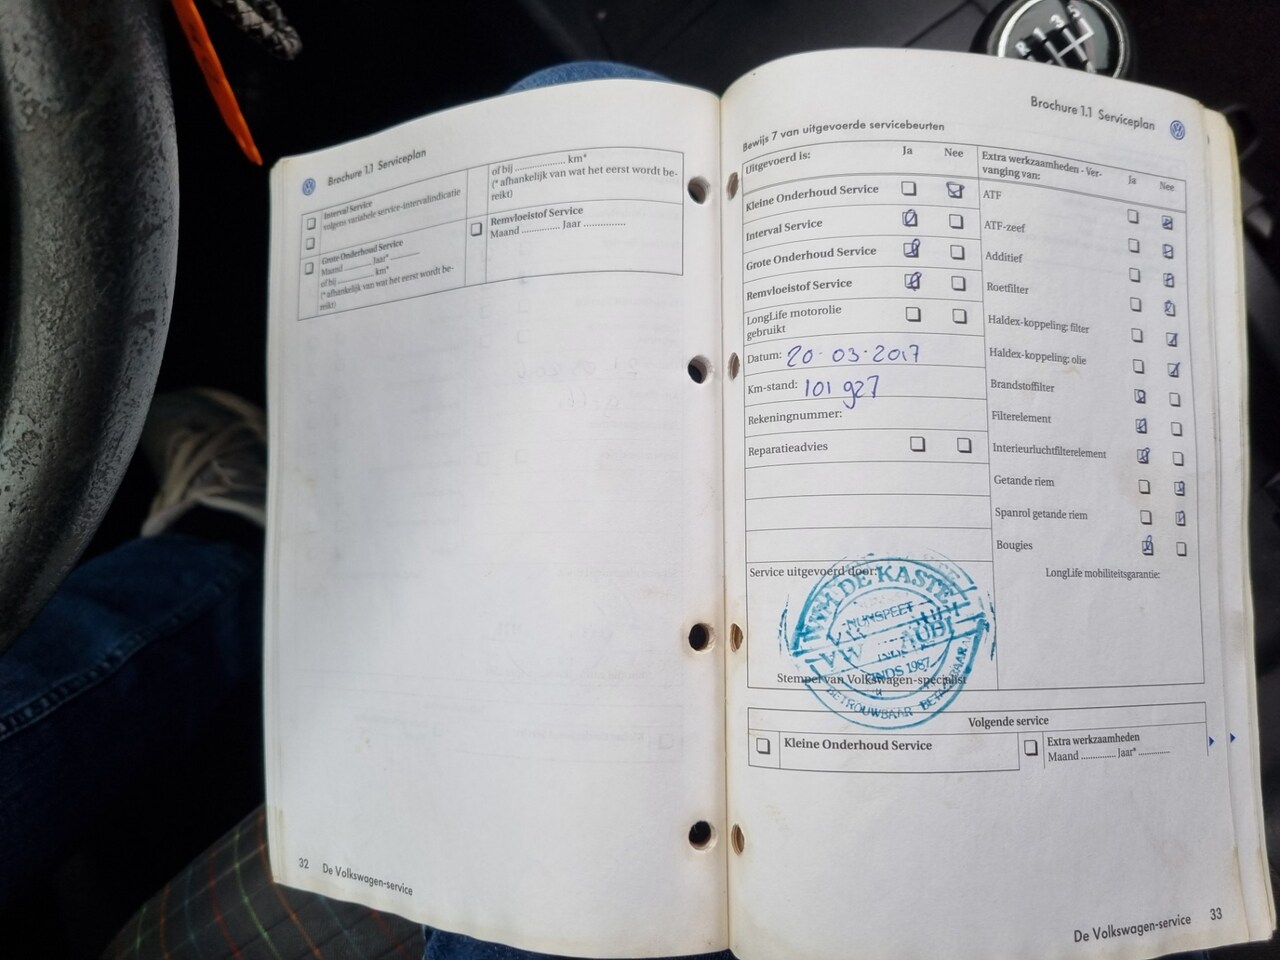 Brochure 1.1 Serviceplan
❑ Interval Service
❑ volgens variabele service-intervalindicatie
❑ Grote Onderhoud Service
Maand .......... Jaar* ..........
of bij .................. km*
(* afhankelijk van wat het eerst wordt be-
reikt)
of bij .................. km*
(* afhankelijk van wat het eerst wordt be-
reikt)
❑ Remvloeistof Service
Maand ............. Jaar ..............
32 De Volkswagen-service
Brochure 1.1 Serviceplan
Bewijs 7 van uitgevoerde servicebeurten
Uitgevoerd is: Ja Nee
Kleine Onderhoud Service
Interval Service
Grote Onderhoud Service
Remvloeistof Service
LongLife motorolie
gebruikt
Datum: 20-03-2017
Km-stand: 101 927
Rekeningnummer:
Reparatieadvies
Service uitgevoerd door:
Stempel van Volkswagen-specialist
Extra werkzaamheden - Ver-
vanging van: Ja Nee
ATF
ATF-zeef
Additief
Roetfilter
Haldex-koppeling: filter
Haldex-koppeling: olie
Brandstoffilter
Filterelement
Interieurluchtfilterelement
Getande riem
Spanrol getande riem
Bougies
LongLife mobiliteitsgarantie:
DE KASTE
NUNSPEET
VW AUDI
SINDS 1987
BETROUWBAAR
Volgende service
❑ Kleine Onderhoud Service
❑ Extra werkzaamheden
Maand .............. Jaar* .............
De Volkswagen-service 33
R 1 3 5